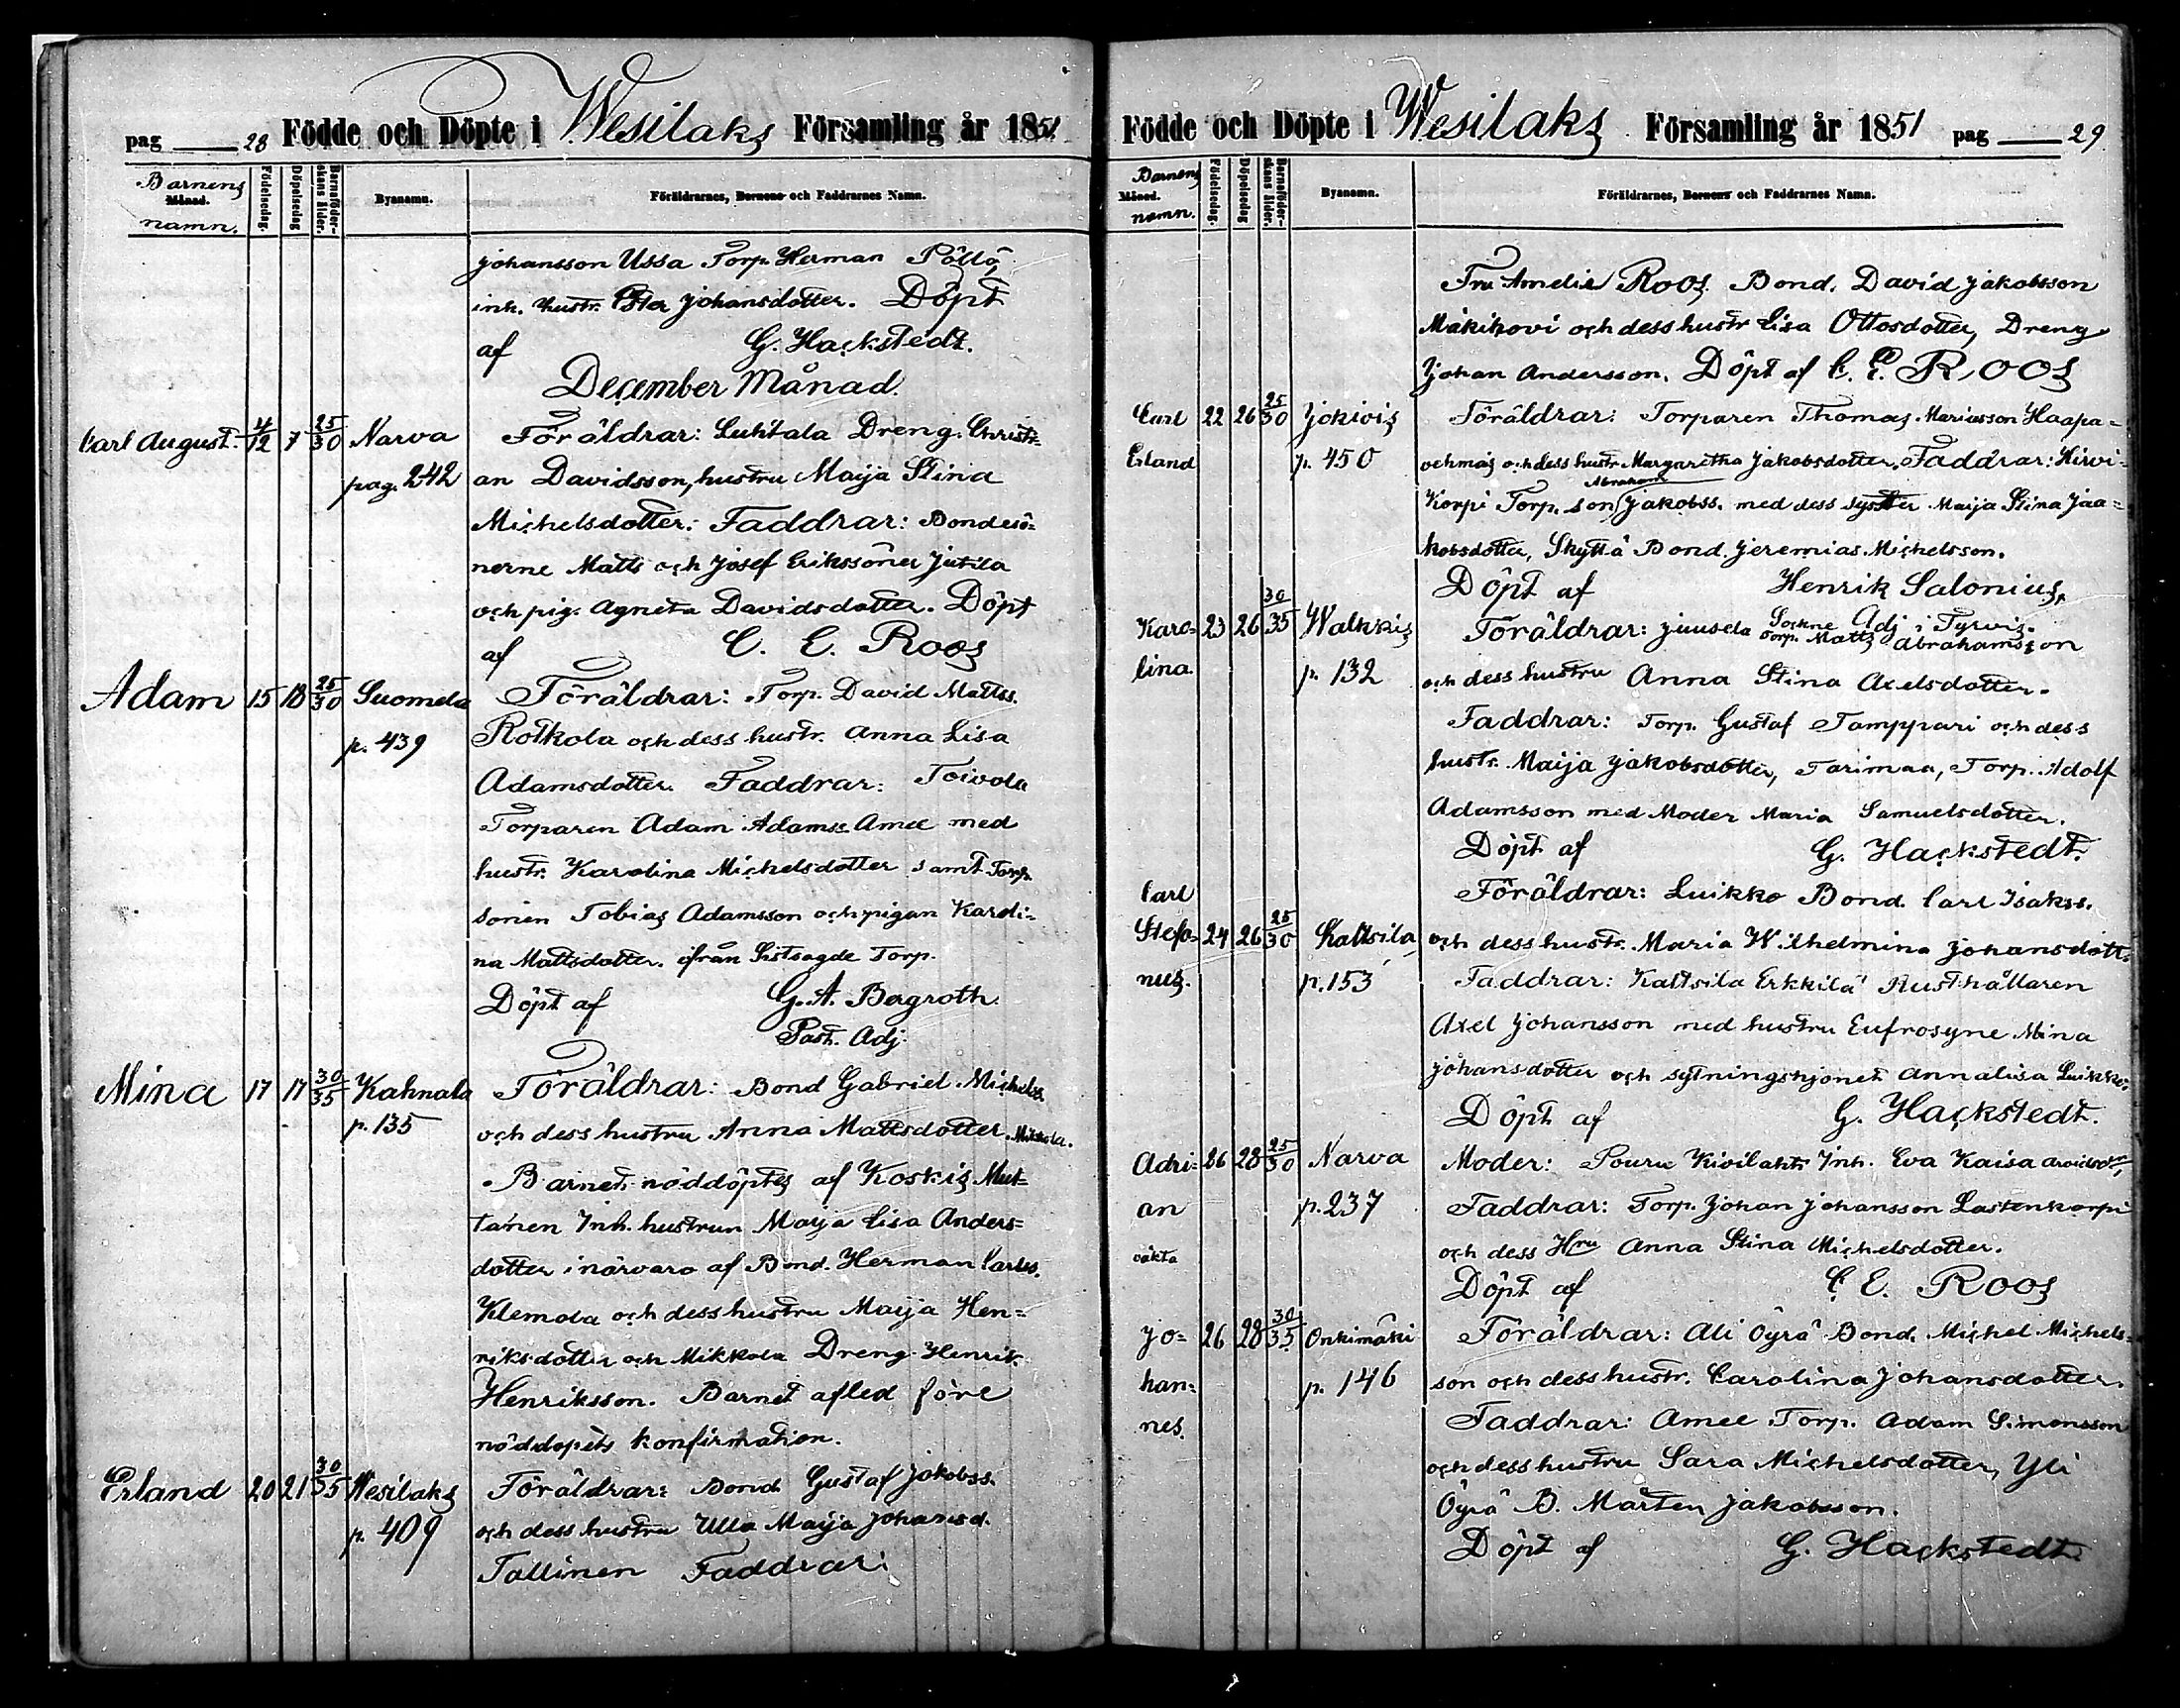 pag 28 Födde och Döpte i Wesilaks Församling år 1851
Barnens Månad. namn. Födelsedag. Döpelsedag Barnaföderskans ålder. Byanamn. Föräldrarnes, Barnens och Faddrarnes Namn.
Johansson Ussa Torp. Herman Pöllö,
inh. hustr. Johansdotter. Döpt
af G. Hackstedt.
December Månad.
Carl August. 4/12 7 25/30 Narva Föräldrar: Luhtala Dreng. Christi=
pag. 242 an Davidsson, hustru Maija Stina
Michelsdotter: Faddrar: Bondesö=
nerne Matts och Josef Erikssöner Jutila
och pig. Agneta Davidsdotter. Döpt
af C. E. Roos
Adam 15 18 25/30 Suomela Föräldrar: Torp. David Matss.
p. 439 Rotkola och dess hustr. Anna Lisa
Adamsdotter. Faddrar: Toivola
Torparen Adam Adamss. Amee med
hustr. Karolina Michelsdotter samt Torp.
sonen Tobias Adamsson och pigan Karoli=
na Mattsdotter. ifrån Sistsagde Torp.
Döpt af G. A. Bergroth
Past. Adj.
Mina 17 17 30/35 Kahnala Föräldrar: Bond Gabriel Michelss.
p. 135 och dess hustru Anna Mattsdotter. Mikkola.
Barnet nöddöptes af Koskis Mut=
tanen Inh. hustrun Maija Lisa Anders=
dotter i närvaro af Bond. Herman Carlss.
Klemola och dess hustru Maija Hen=
riksdotter och Mikkola Dreng Henrik
Henriksson. Barnet afled före
nöddopets konfirmation.
Erland 20 21 30/35 Wesilaks Föräldrar: Bond Gustaf Jakobss.
p. 409 och dess hustru Ulla Maija Johansd.
Tallinen Faddrar:
Födde och Döpte i Wesilaks Församling år 1851 pag 29
Barnens Månad. namn. Födelsedag. Döpelsedag Barnaföderskans ålder. Byanamn. Föräldrarnes, Barnens och Faddrarnes Namn.
Fru Amelie Roos. Bond. David Jakobsson
Mäkihovi och dess hustr Lisa Ottosdotter, Dreng
Johan Andersson. Döpt af C. E. Roos
Carl 22 26 25/30 Jokivis Föräldrar: Torparen Thomas Mariasson Haapa=
Erland p. 450 och dess hustr. Margaretha Jakobsdotter. Faddrar: Hirvi=
Korpi Torp. son Abraham Jakobss. med dess syster Maija Stina Jaa=
kobsdotter, Skyttä Bond. Jeremias Michelsson.
Döpt af Henrik Salonius,
Sockne Adj. i Tyrvis.
Karo= 23 26 30/35 Walkkis Föräldrar: Juusela Torp. Matts Abrahamsson
lina. p. 132 och dess hustru Anna Stina Axelsdotter.
Faddrar: Torp. Gustaf Tamppari och dess
hustr. Maija Jakobsdotter, Tarimaa, Torp. Adolf
Adamsson med Moder Maria Samuelsdotter.
Döpt af G. Hackstedt.
Carl Föräldrar: Luikko Bond. Carl Isakss.
Stefa= 24 26 25/30 Kaltsila och dess hustr. Maria Wilhelmina Johansdott.
nus. p. 153 Faddrar: Kaltsila Erkkilä Rusthållaren
Axel Johansson med hustru Eufrosyne Mina
Johansdotter och sytningshjonet Annalisa Luikko.
Döpt af G. Hackstedt.
Adri= 26 28 25/30 Narva Moder: Pouru Kivilahti Inh. Eva Kaisa
an p. 237 Faddrar: Torp. Johan Johansson Lastenkorpi
oäkta och dess Hru Anna Stina Michelsdotter.
Döpt af C E. Roos
Jo= 26 28 30/35 Onkimäki Föräldrar: Ali Öyrä Bond. Michel Michels=
han= p. 146 son och dess hustr. Carolina Johansdotter.
nes. Faddrar: Amee Torp. Adam Simonsson
och dess hustru Sara Michelsdotter, Yli
Öyrä B. Mårten Jakobsson.
Döpt af G. Hackstedt.